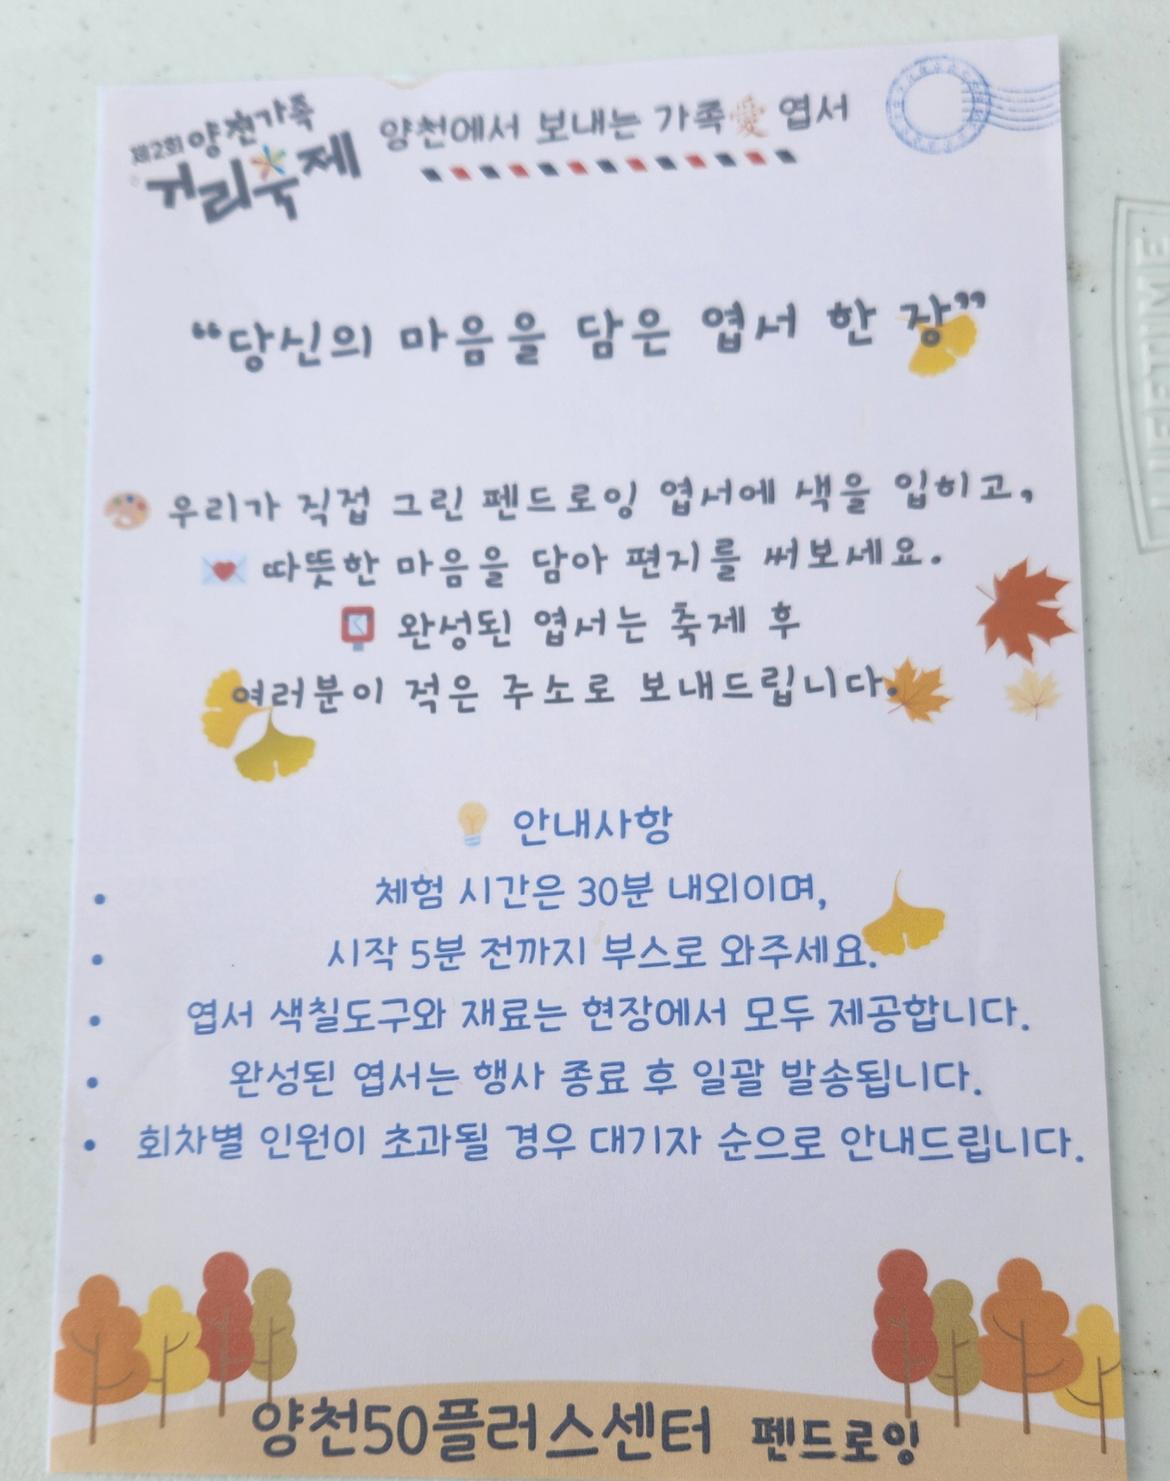 제2회 양천가족
거리축제
양천에서 보내는 가족愛 엽서
“당신의 마음을 담은 엽서 한 장”
우리가 직접 그린 펜드로잉 엽서에 색을 입히고,
따뜻한 마음을 담아 편지를 써보세요.
완성된 엽서는 축제 후
여러분이 적은 주소로 보내드립니다.
안내사항
• 체험 시간은 30분 내외이며,
• 시작 5분 전까지 부스로 와주세요.
• 엽서 색칠도구와 재료는 현장에서 모두 제공합니다.
• 완성된 엽서는 행사 종료 후 일괄 발송됩니다.
• 회차별 인원이 초과될 경우 대기자 순으로 안내드립니다.
양천50플러스센터 펜드로잉
LIFETIME